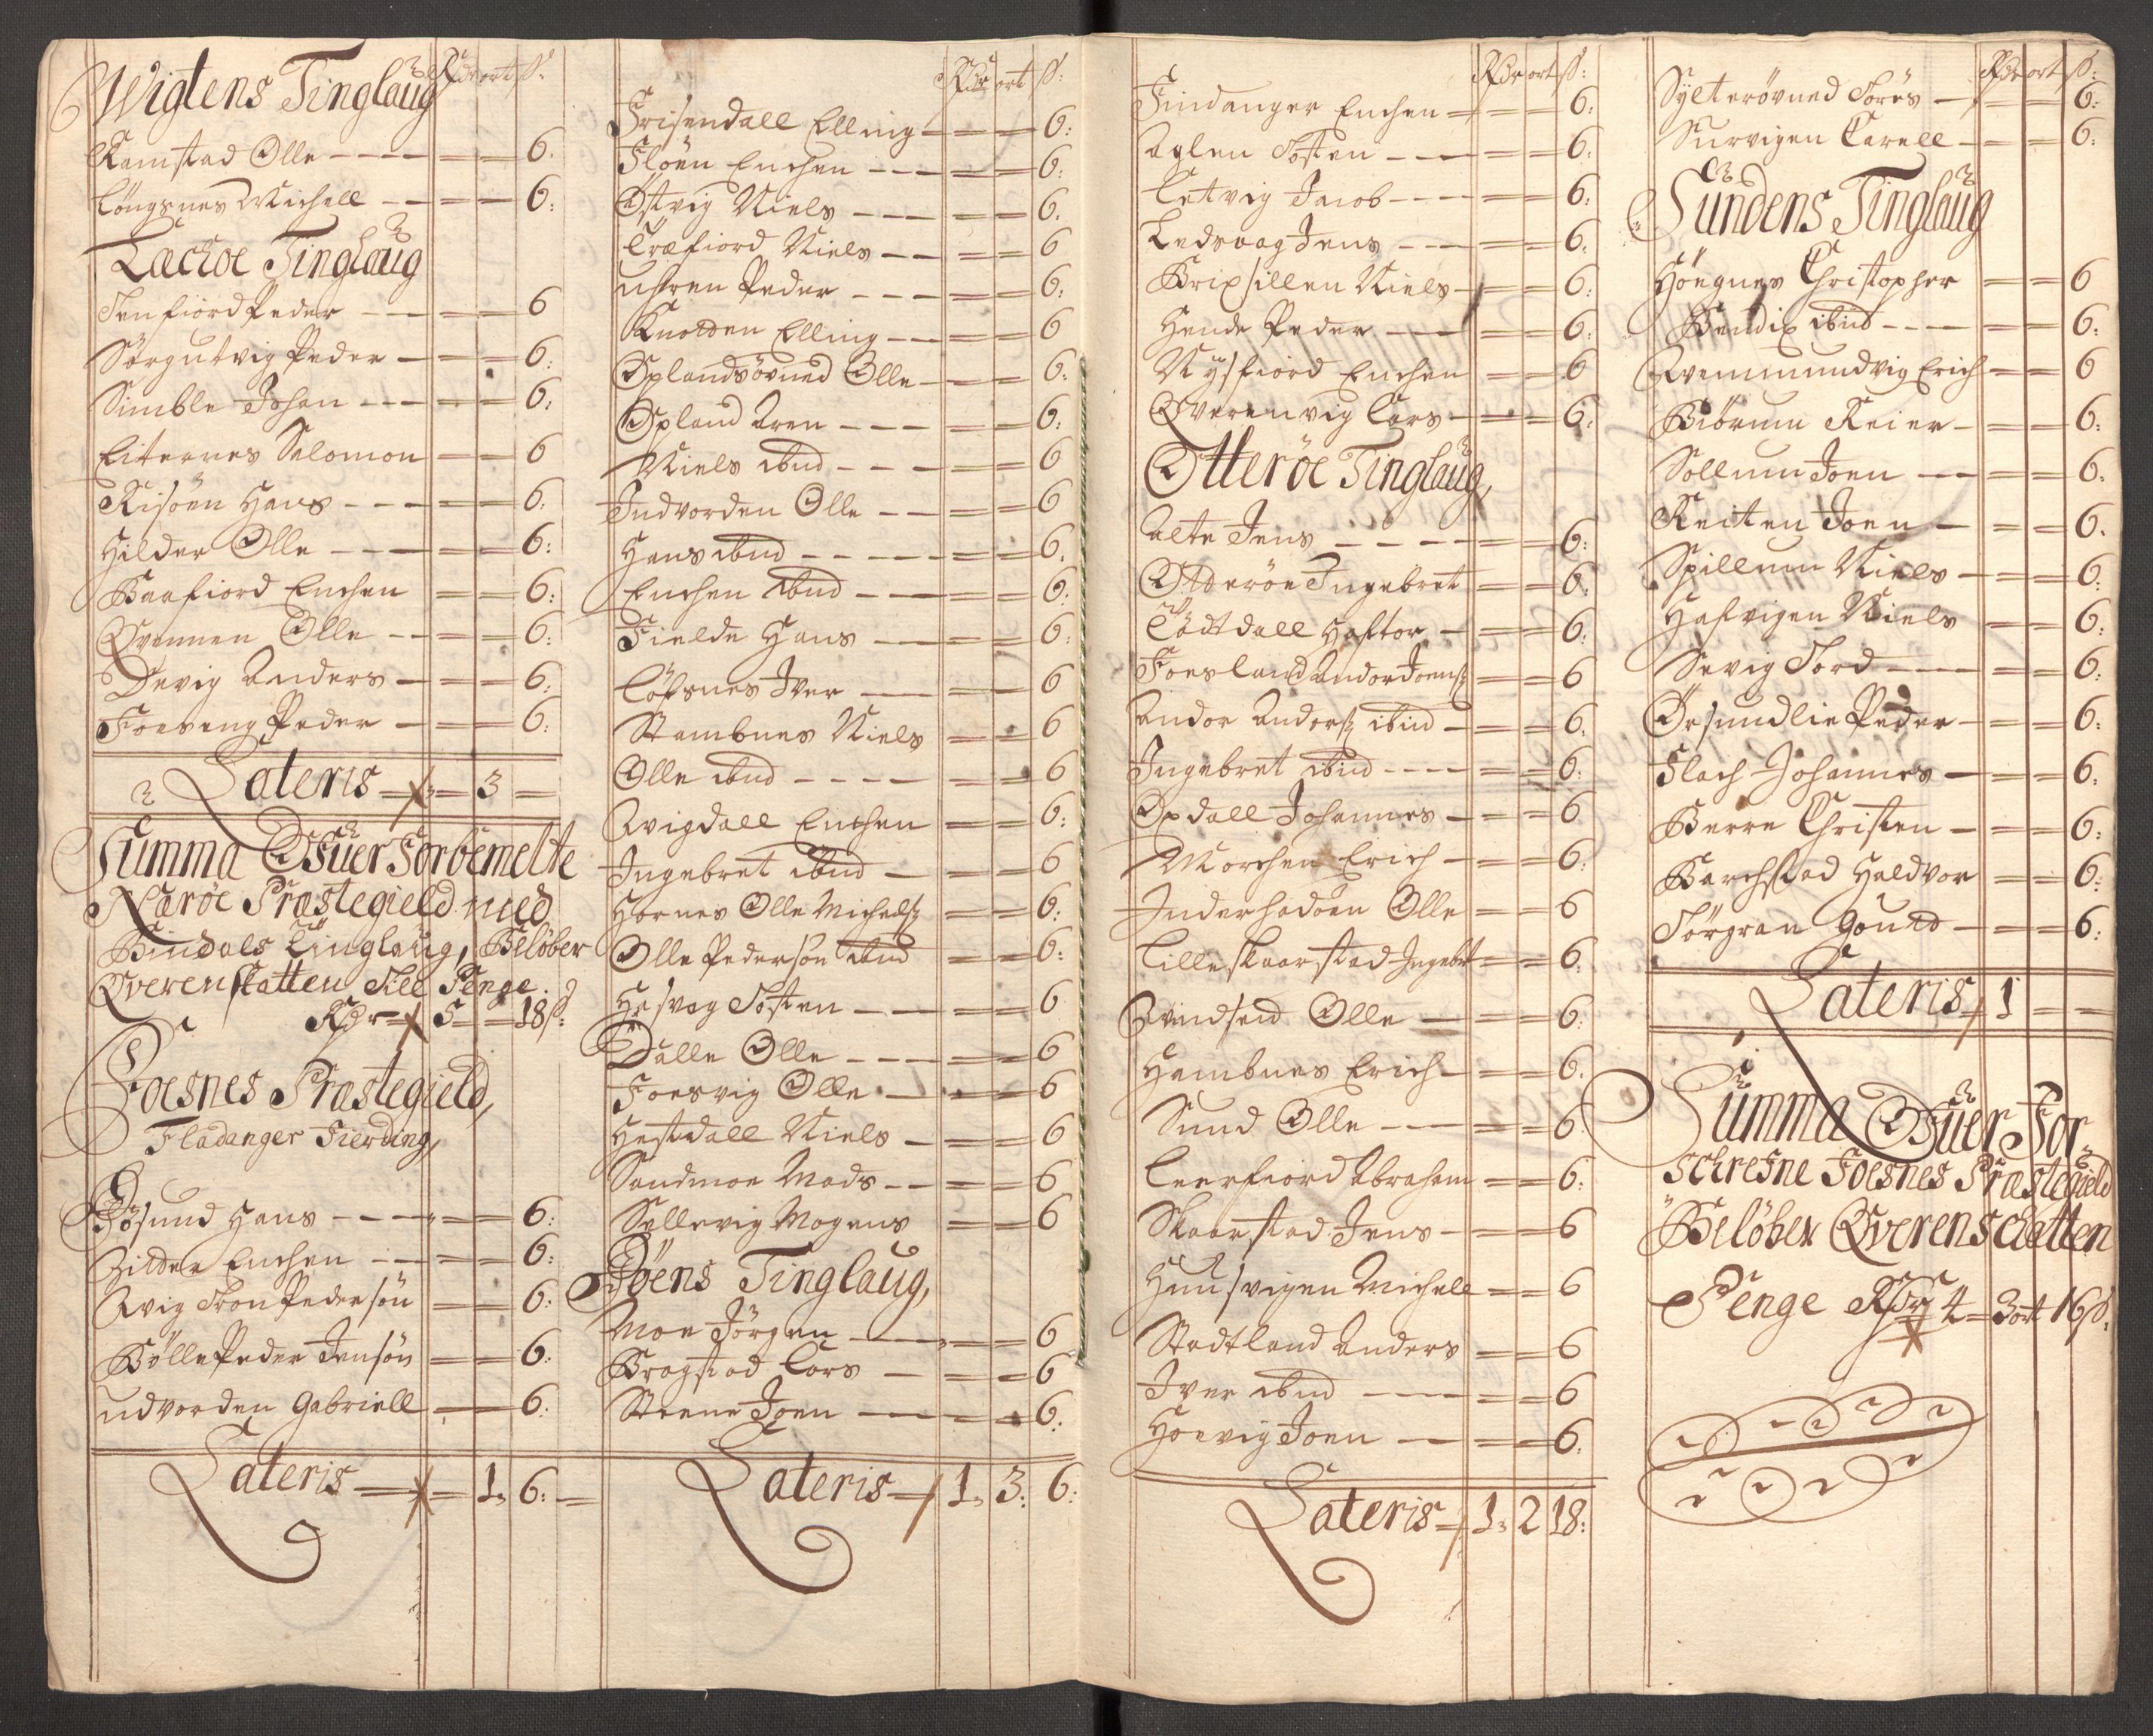 Wigtens Tinglaug Rdr ort ß:
Ramstad Olle 6.
Löngsnes Michell 6:
Læckøe Tinglaug
Tenfiord Peder 6
Sörgutvig Peder 6:
Simble Johan 6:
Eiternes Salomon 6
Risöen Hans 6:
Hilder Olle 6:
Kaafiord Enchen 6:
Qvennen Olle 6:
Devig Anders 6:
Foeseng Peder 6:
Lateris 3
Summa Ofuer forbemelte
Nærøe Præstegield med
Bindals Tinglaug, Beløber
Qverenskatten Till Penge
Rdr 5 18 ß:
Foesnes Præstegield,
Fladanger Fierding,
Bösund Hans 6:
Zitter Enchen 6:
Qvig Tron Pedersön 6:
Bölle Peder Jensön 6:
Udvorden Gabriell 6:
Lateris 1. 6:
Rdr ort ß:
Frisendall Elling 6:
Floen Enchen 6:
Østvig Niels 6.
Træfiord Niels 6
Uhren Peder 6:
Knotten Elling 6
Oplandsövned Olle 6:
Opland Aren 6:
Niels ibnd 6
Indvorden Olle 6
Hans ibnd 6.
Enchen ibnd 6:
Fielde Hans 6:
Löfsnes Iver 6
Stambnes Niels 6
Olle ibnd 6
Qvigdall Enchen 6:
Ingebret ibnd 6
Hornes Olle Michels: 6:
Olle Pedersön ibnd 6:
Hasvog Tosten 6
Dalle Olle 6
Foesvig Olle 6
Hestdall Niels 6
Sandmoe Mads 6
Sellevig Mogens 6
Böens Tinglaug,
Moe Jörgen 6
Bragstad Lars 6
Steene Joen 6:
Lateris 1. 3. 6:
Rdr ort ß:
Findanger Enchen 6:
Aglen Tosten 6:
Tetvig Jacob 6:
Ledsaag Jens 6:
Brixsillen Niels 6:
Hende Peder 6:
Nysfiord Enchen 6
Qverenvig Lars 6:
Otterøe Tinglaug,
Alte Jens 6:
Otterøe Ingebret 6:
Lödtdall Haftor 6:
Foesland Andor Joens: 6
Andor Andors: ibnd 6.
Ingebret ibnd 6:
Opdall Johannes 6
Morchen Erich 6:
Inderhadöen Olle 6
Lille Skaarstad Ingebt 6:
Qvindseid Olle 6:
Hambnes Erich 6:
Sund Olle 6:
Leerfiord Abraham 6:
Skaarstad Jens 6
Hunsvigen Michell 6
Stadtland Anders 6
Iver ibnd 6
Hoevig Joen 6:
Lateris 1. 2 18:
Rdr ort ß:
Sylterövned Tores 6:
Survigen Carell 6:
Sundens Tinglaug
Höegnes Christopher 6
Bendix ibnd 6:
Qvemmundvig Erich 6
Biörum Reier 6:
Sollum Joen 6.
Reiten Joen 6.
Spillum Niels 6:
Hafvigen Niels 6:
Sevig Tord 6:
Örsundlie Peder 6:
Flach Johannes 6:
Berre Christen 6:
Barchstad Haldvor 6:
Törgran Gound 6:
Lateris 1
Summa Ofuer For-
schrefne Foesnes Præstegield
Beløber Qverenschatten
Penge Rdr 4 3 ort 16 ß.